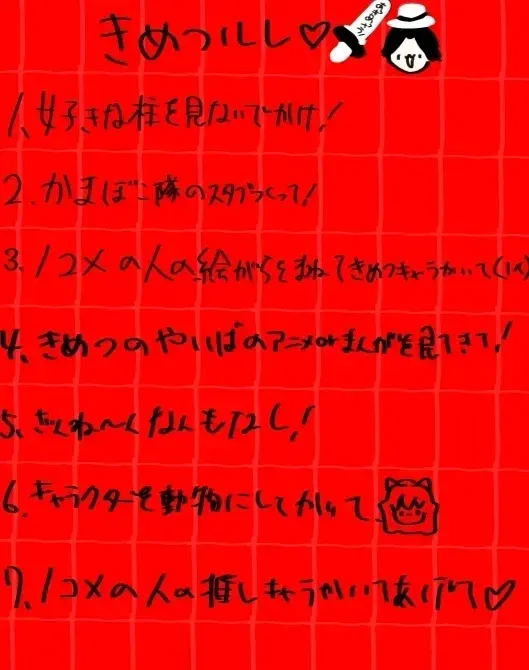 きめつルし♡
1、好きな柱を見ないでかけ!
2.かまぼこ隊のスタプつくって!
3、1コメの人の絵がらをまねてきめつキャラかいて(1人)
4、きめつのやいばのアニメorまんがを見てきて!
5、ざんね〜んなんもなし!
6.キャラクターを動物にしてかいて
7、1コメの人の推しキャラかいてあげて♡